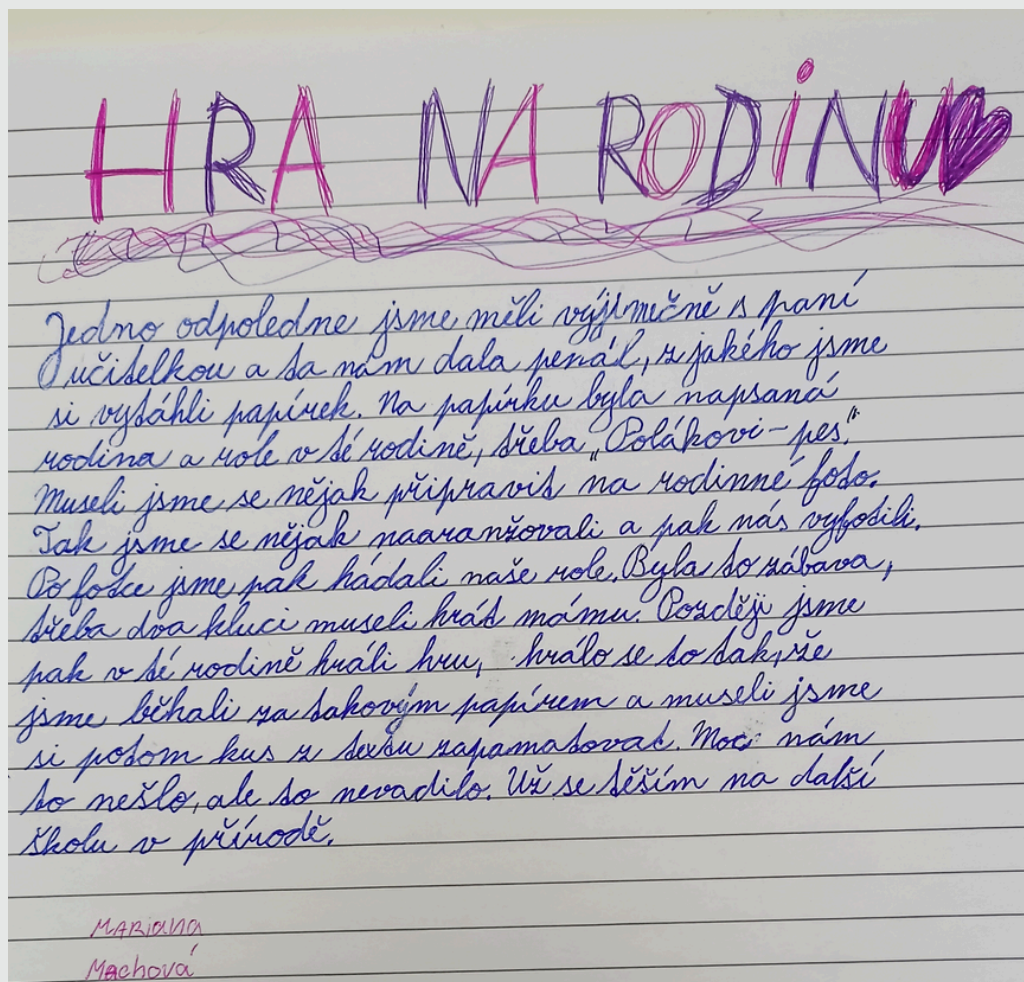 HRA NA RODiNU
Jedno odpoledne jsme měli výjimečně s paní
učitelkou a ta nám dala penál, z jakého jsme
si vytáhli papírek. Na papírku byla napsaná
rodina a role v té rodině, třeba „Polákovi – pes“.
Museli jsme se nějak připravit na rodinné foto.
Tak jsme se nějak naaranžovali a pak nás vyfotili.
Po fotce jsme pak hádali naše role. Byla to zábava,
třeba dva kluci museli hrát mámu. Později jsme
pak v té rodině hráli hru, hrálo se to tak, že
jsme běhali za takovým papírem a museli jsme
si potom kus z textu zapamatovat. Moc nám
to nešlo, ale to nevadilo. Už se těším na další
školu v přírodě.
MARiana
Machová